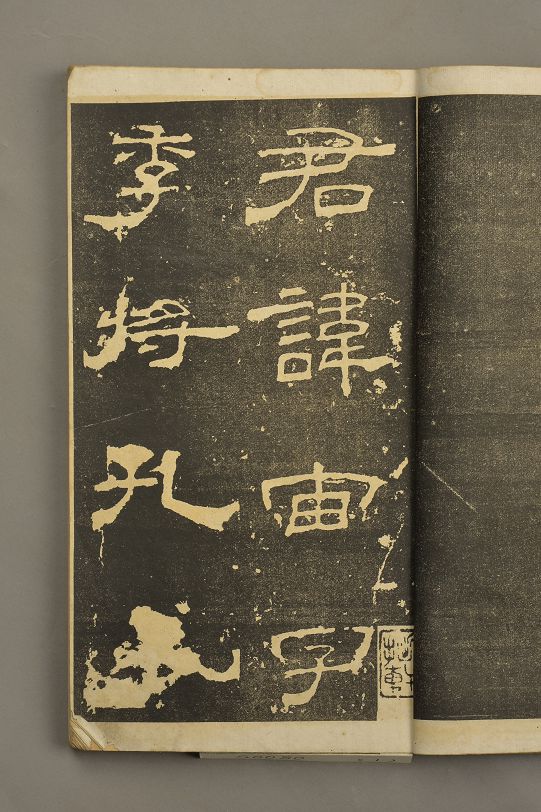 君諱宙字
季將孔